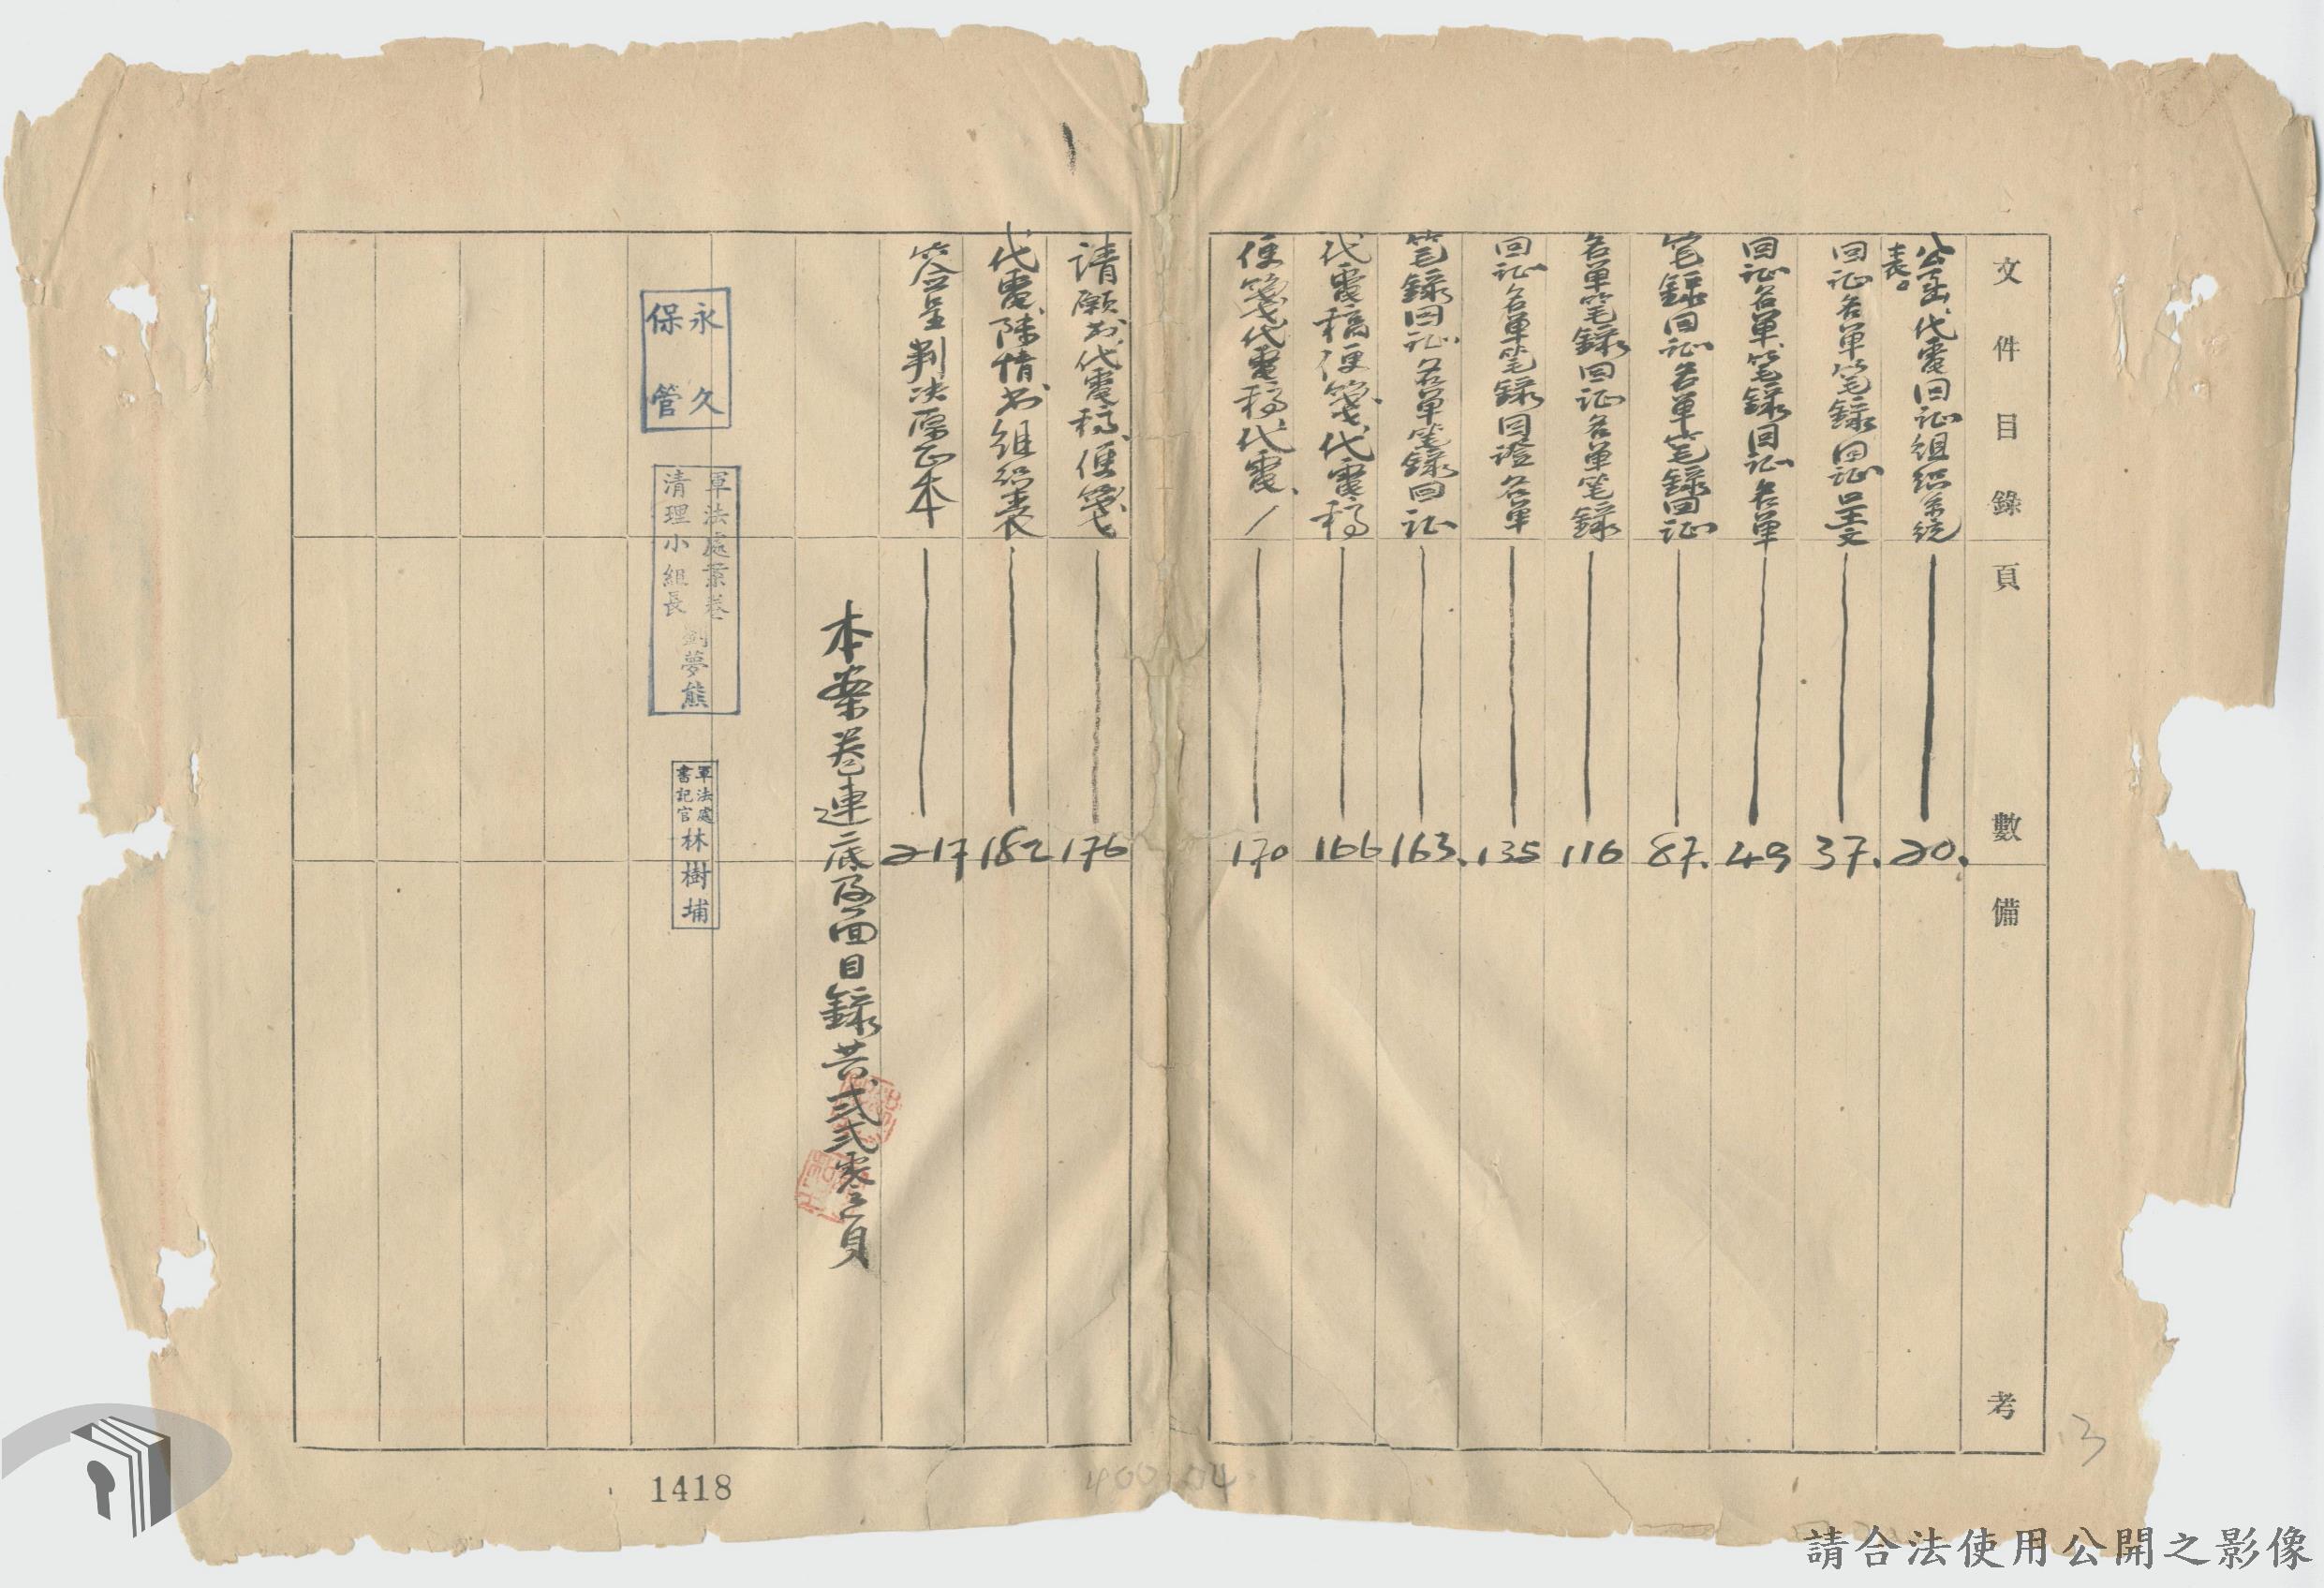 文件目錄 頁數 備考
公函代電回证組織系統表。 20.
回证名單笔錄回证呈文 37.
回证名單笔錄回证名單 49
笔錄回证名單笔錄回证 87.
名單笔錄回证名單笔錄 116
回证名單笔錄回證名單 135
笔錄回证名單笔錄回证 163.
代電稿便箋代電稿 166
便箋代電稿代電 170
請願书代電稿便箋 176
代電陳情书組织表 182
签呈判决原正本 217
本案卷連底及面目錄共貳貳零頁
永久保管
軍法處案卷清理小組長 劉夢熊
軍法處書記官 林樹埔
1418
3
請合法使用公開之影像